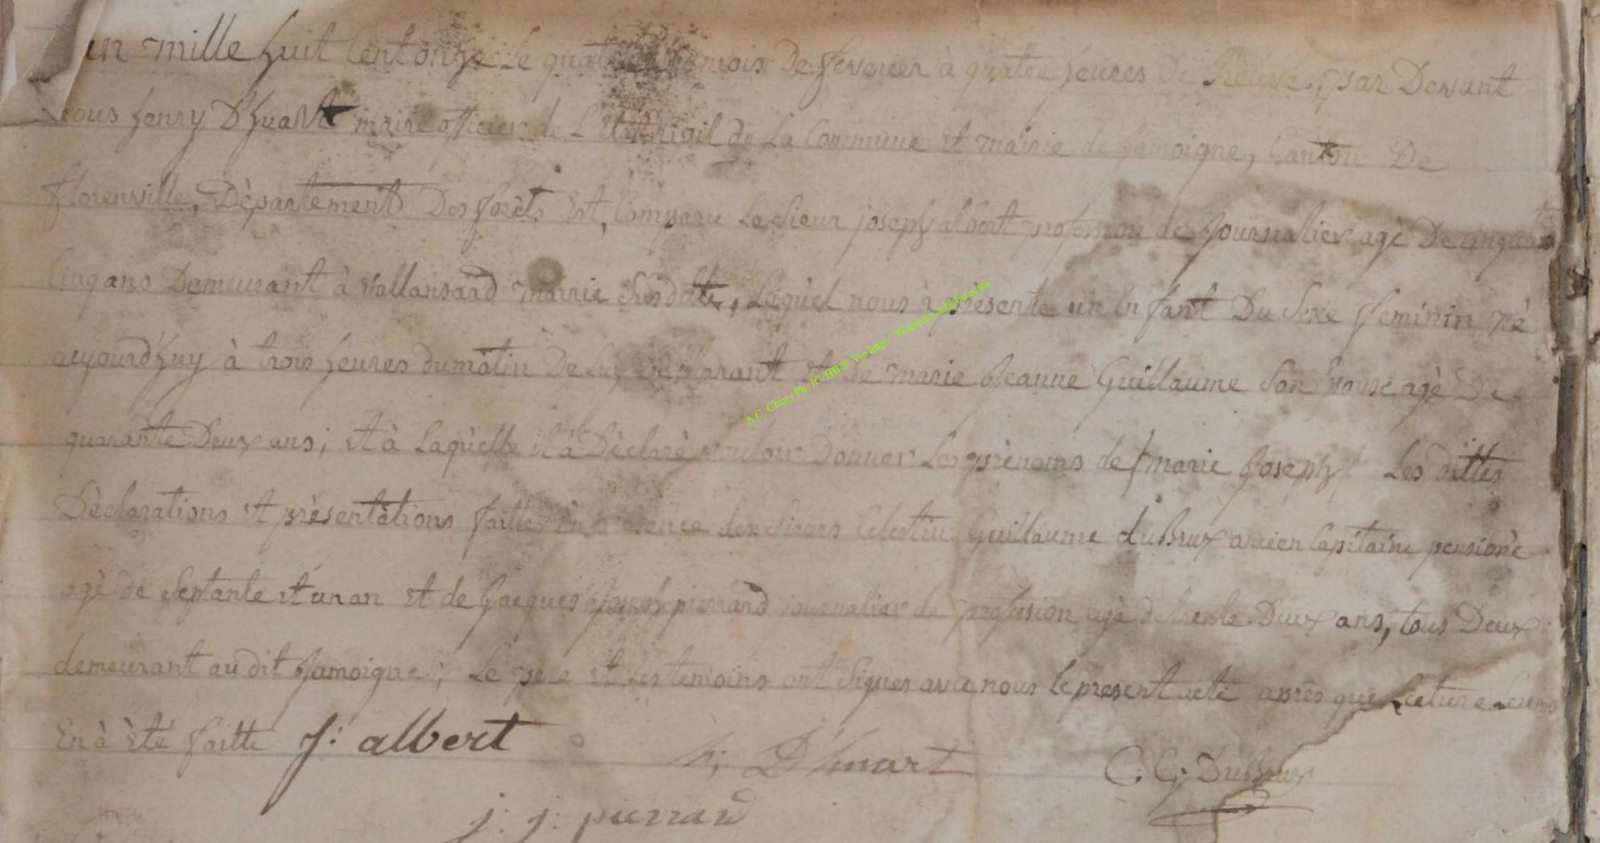 un mille huit Cent onze Le quatre mois De fevrier à quatre heures De Releve, par Devant
nous henry D'huart maire officier de L'Etat Civil de La Commune et mairie de Jamoigne, Canton De
Florenville, Département Des forêts Est, Comparu Le Sieur joseph albert profession de Journallier agé De cinquante
Cinq ans Demeurant à Vallansard mairie susditte, Lequel nous à présenté un Enfant Du Sexe féminin né
aujourd'huy à trois heures du matin De Luy Déclarant et de marie Jeanne Guillaume Son Epouse agé De
quarante Deux ans; et à Laquelle il à Déclaré vouloir Donner Les prénoms de / marie Joseph / Les dittes
Déclarations et présentations faittes En présence des Sieurs Celestin Guillaume duBrux ancien Capitaine pensioné
agé de Septante et un an et de Jacques Joseph pierrard journalier de profession agé de trente Deux ans, tous Deux
demeurant au dit Jamoigne; Le pere et Les temoins ont Signes avec nous le present acte aprês que Lecture Leurs
En à èté faitte J: albert
h; D'huart
C: G: DuBrux
j: j: pierrard